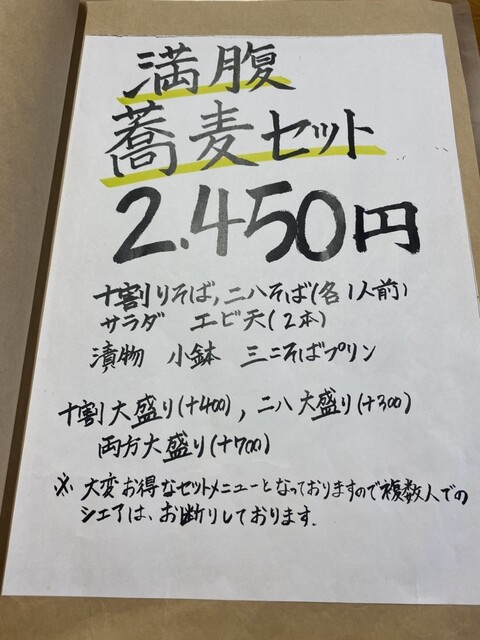 満腹
蕎麦セット
2.450円
十割りそば,二八そば(各1人前)
サラダ エビ天(2本)
漬物 小鉢 ミニそばプリン
十割大盛り(+400),二八大盛り(+300)
両方大盛り(+700)
※大変お得なセットメニューとなっておりますので複数人での
シェアは、お断りしております.